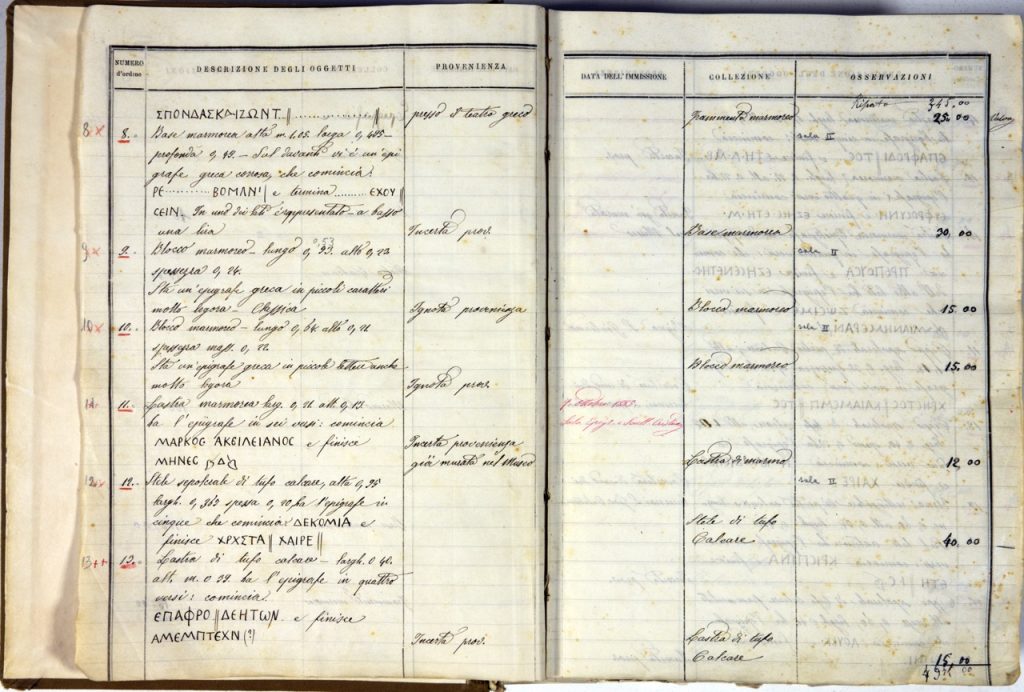 NUMERO
d'ordine
DESCRIZIONE DEGLI OGGETTI
PROVENIENZA
ΣΠΟΝΔΑΣΚΑΙΖΩΝΤ || ||
presso il teatro greco
8 × 8. Base marmorea alta m. 1,05. larga 0,485
profonda 0,49. Sul davanti vi è un'epi
grafe greca corrosa, che comincia:
ΡΕ ΒΟΜΑΝΙ || e termina ΕΧΟΥ ||
CEIN. In uno dei lati è rappresentato a basso
una
Incerta prov.
9 × 9. Blocco marmoreo lungo 0,93. alto 0,23
0,53
spessezza 0,24.
Sta un'epigrafe greca in piccoli caratteri
molto logora
Ignota provenienza
10 × 10. Blocco marmoreo lungo 0,64 alto 0,21
spessezza mass. 0,22.
Sta un'epigrafe greca in piccole lettere anche
molto logora
Ignota prov.
11. Lastra marmorea larg. 0,21 alt. 0,13.
ha l'epigrafe in sei versi: comincia
ΜΑΡΚΟΣ ΑΚΕΙΛΕΙΑΝΟΣ e finisce
Incerta provenienza
ΜΗΝΕC
già murata nel Museo
12 × 12. Stele sepolcrale di tufo calcare, alta 0,95
largh. 0,363 spessa 0,20, ha l'epigrafe in
cinque che comincia: ΔΕΚΟΜΙΑ e
finisce ΧΡΧΣΤΑ || ΧΑΙΡΕ ||
13 ++ 13. Lastra di tufo calcare largh. 0 40.
alt. m. 0 39. ha l'epigrafe in quattro
versi: comincia:
ΕΠΑΦΡΟ || ΔΕΗΤΩΝ e finisce
ΑΜΕΜΠΤΕΧΝ (?)
Incerta prov.
DATA DELL'IMMISSIONE
COLLEZIONE
OSSERVAZIONI
Riporto 345.00
Frammento marmoreo 25.00
sala II
Base marmorea 30.00
sala II
Blocco marmoreo 15.00
sala II
Blocco marmoreo 15.00
Lastra di marmo 12.00
sala II
Stele di tufo
Calcare 40.00
Lastra di tufo
Calcare 15.00